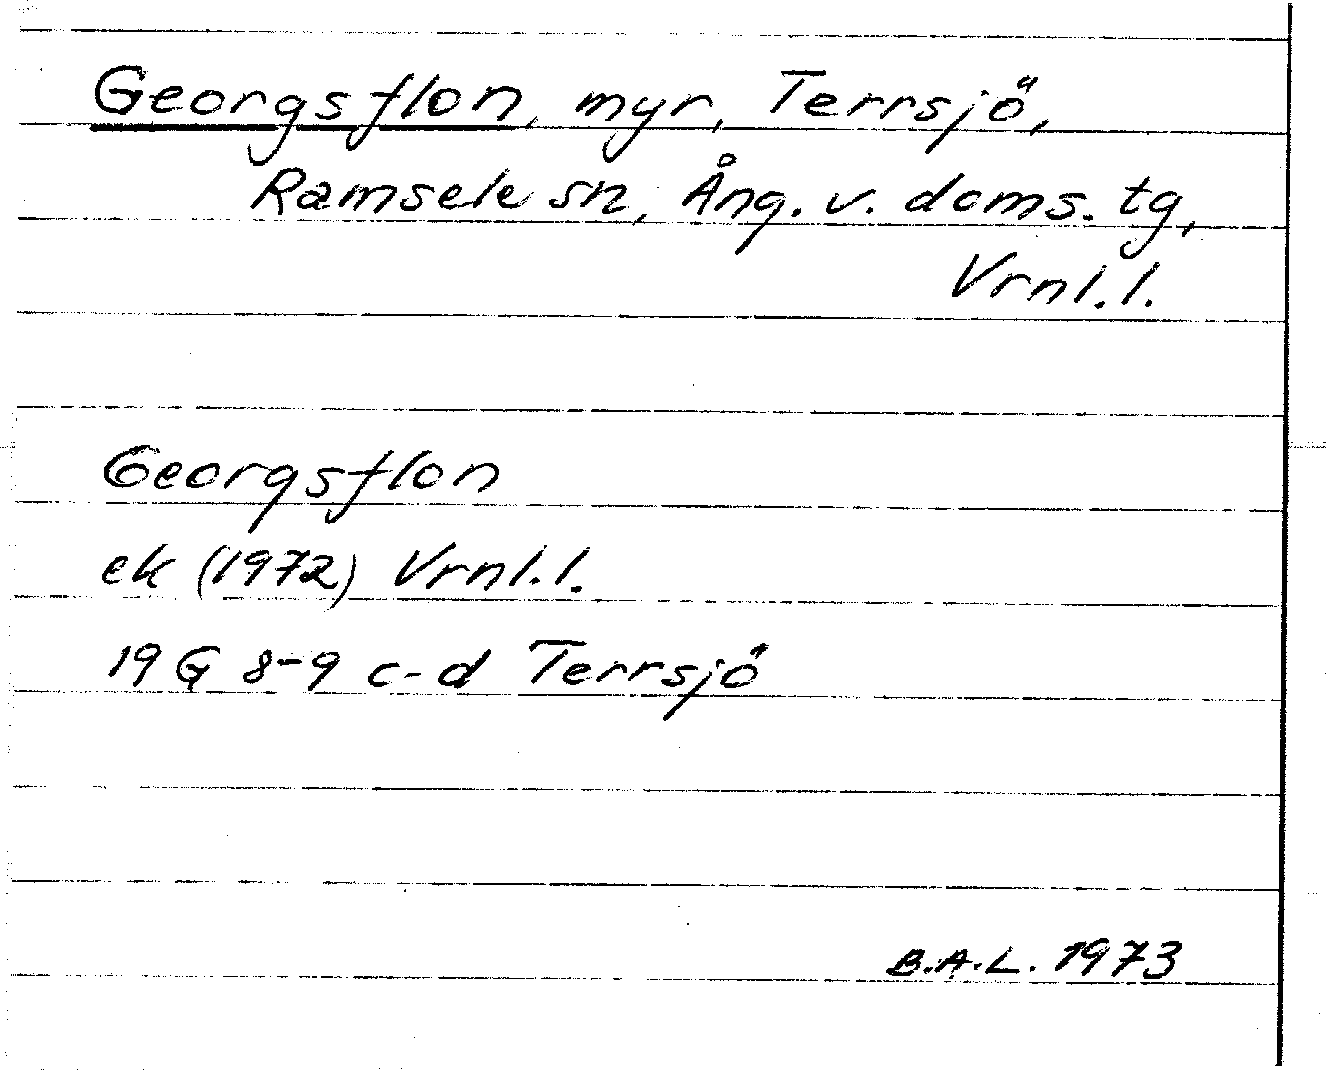 Georgsflon, myr, Terrsjö,
Ramsele sn, Ång. v. doms. tg,
Vrnl. l.
Georgsflon
ek (1972) Vrnl. l.
19 G 8-9 c-d Terrsjö
B.A.L. 1973